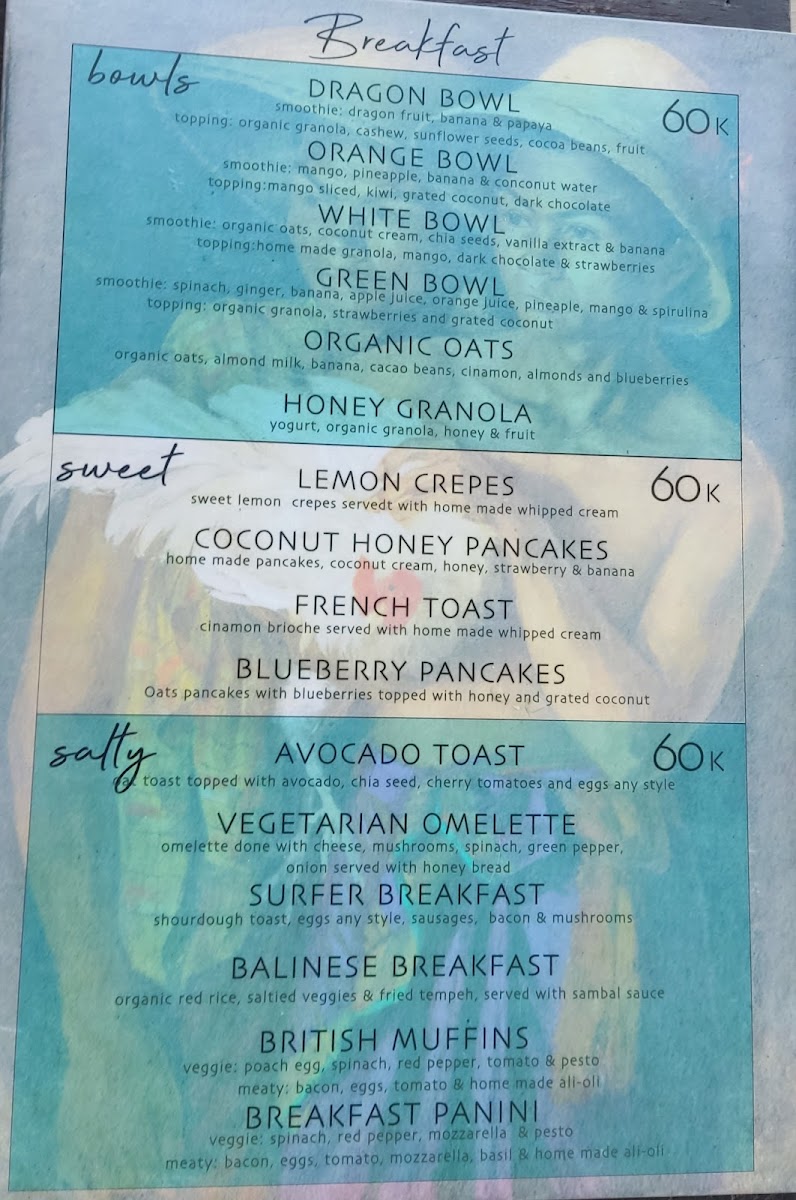 Breakfast
bowls
DRAGON BOWL
60K
smoothie: dragon fruit, banana & papaya
topping: organic granola, cashew, sunflower seeds, cocoa beans, fruit
ORANGE BOWL
smoothie: mango, pineapple, banana & conconut water
topping:mango sliced, kiwi, grated coconut, dark chocolate
WHITE BOWL
smoothie: organic oats, coconut cream, chia seeds, vanilla extract & banana
topping:home made granola, mango, dark chocolate & strawberries
GREEN BOWL
smoothie: spinach, ginger, banana, apple juice, orange juice, pineaple, mango & spirulina
topping: organic granola, strawberries and grated coconut
ORGANIC OATS
organic oats, almond milk, banana, cacao beans, cinamon, almonds and blueberries
HONEY GRANOLA
yogurt, organic granola, honey & fruit
sweet
LEMON CREPES
60K
sweet lemon crepes servedt with home made whipped cream
COCONUT HONEY PANCAKES
home made pancakes, coconut cream, honey, strawberry & banana
FRENCH TOAST
cinamon brioche served with home made whipped cream
BLUEBERRY PANCAKES
Oats pancakes with blueberries topped with honey and grated coconut
salty
AVOCADO TOAST
60K
toast topped with avocado, chia seed, cherry tomatoes and eggs any style
VEGETARIAN OMELETTE
omelette done with cheese, mushrooms, spinach, green pepper,
onion served with honey bread
SURFER BREAKFAST
shourdough toast, eggs any style, sausages, bacon & mushrooms
BALINESE BREAKFAST
organic red rice, saltied veggies & fried tempeh, served with sambal sauce
BRITISH MUFFINS
veggie: poach egg, spinach, red pepper, tomato & pesto
meaty: bacon, eggs, tomato & home made ali-oli
BREAKFAST PANINI
veggie: spinach, red pepper, mozzarella & pesto
meaty: bacon, eggs, tomato, mozzarella, basil & home made ali-oli